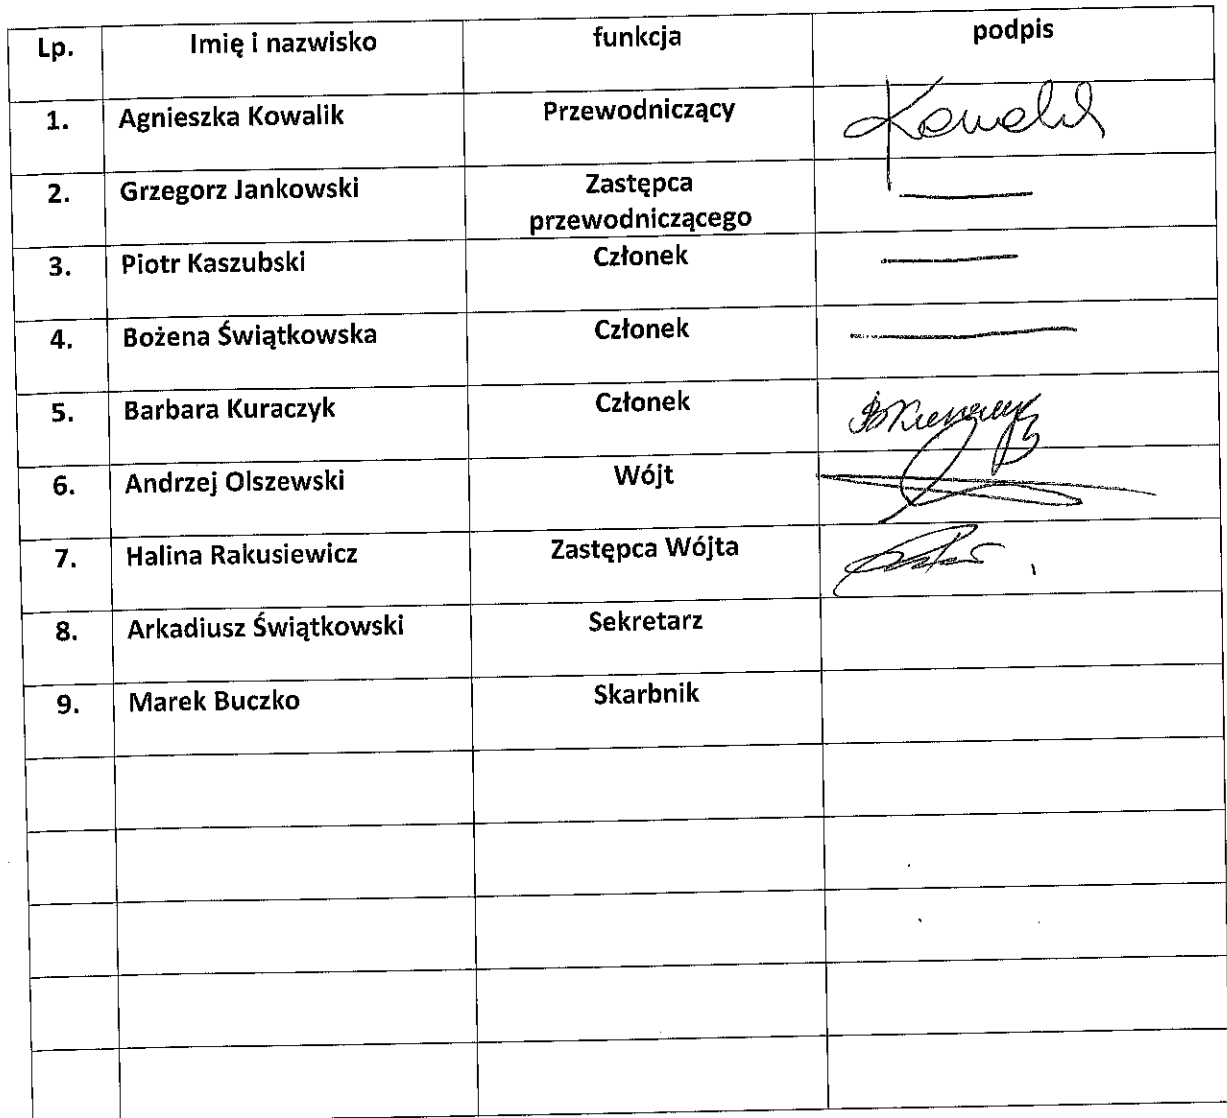 Lp. Imię i nazwisko funkcja podpis
1. Agnieszka Kowalik Przewodniczący Kowalik
2. Grzegorz Jankowski Zastępca
przewodniczącego
3. Piotr Kaszubski Członek
4. Bożena Świątkowska Członek
5. Barbara Kuraczyk Członek
6. Andrzej Olszewski Wójt
7. Halina Rakusiewicz Zastępca Wójta
8. Arkadiusz Świątkowski Sekretarz
9. Marek Buczko Skarbnik